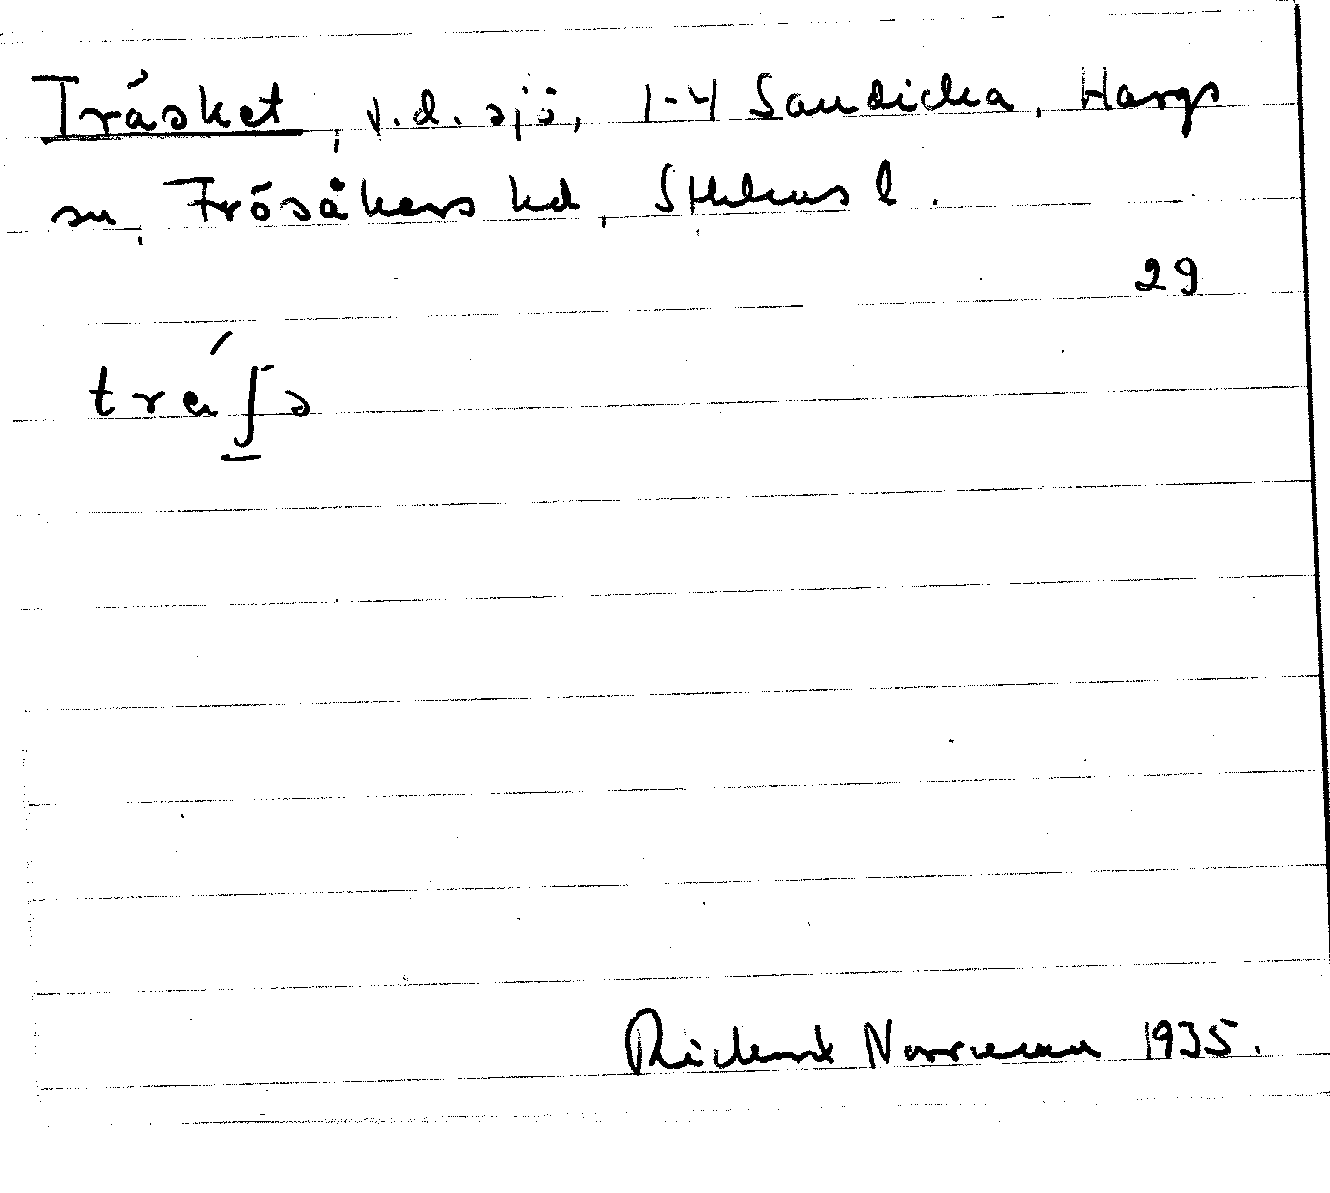 Träsket, v.d. sjö, 1-4 Sandicka, Hargs
sn, Frösåkers hd, Sthlms l.
29
Rickard Norrman 1935.